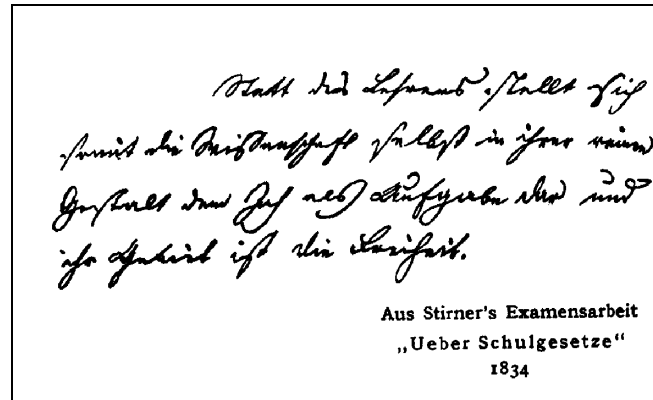 Statt des Lehrers stellt sich
somit die Wissenschaft selbst in ihrer reinen
Gestalt dem Ich als Aufgabe dar und
ihr Gebiet ist die Freiheit.
Aus Stirner's Examensarbeit
„Ueber Schulgesetze“
1834